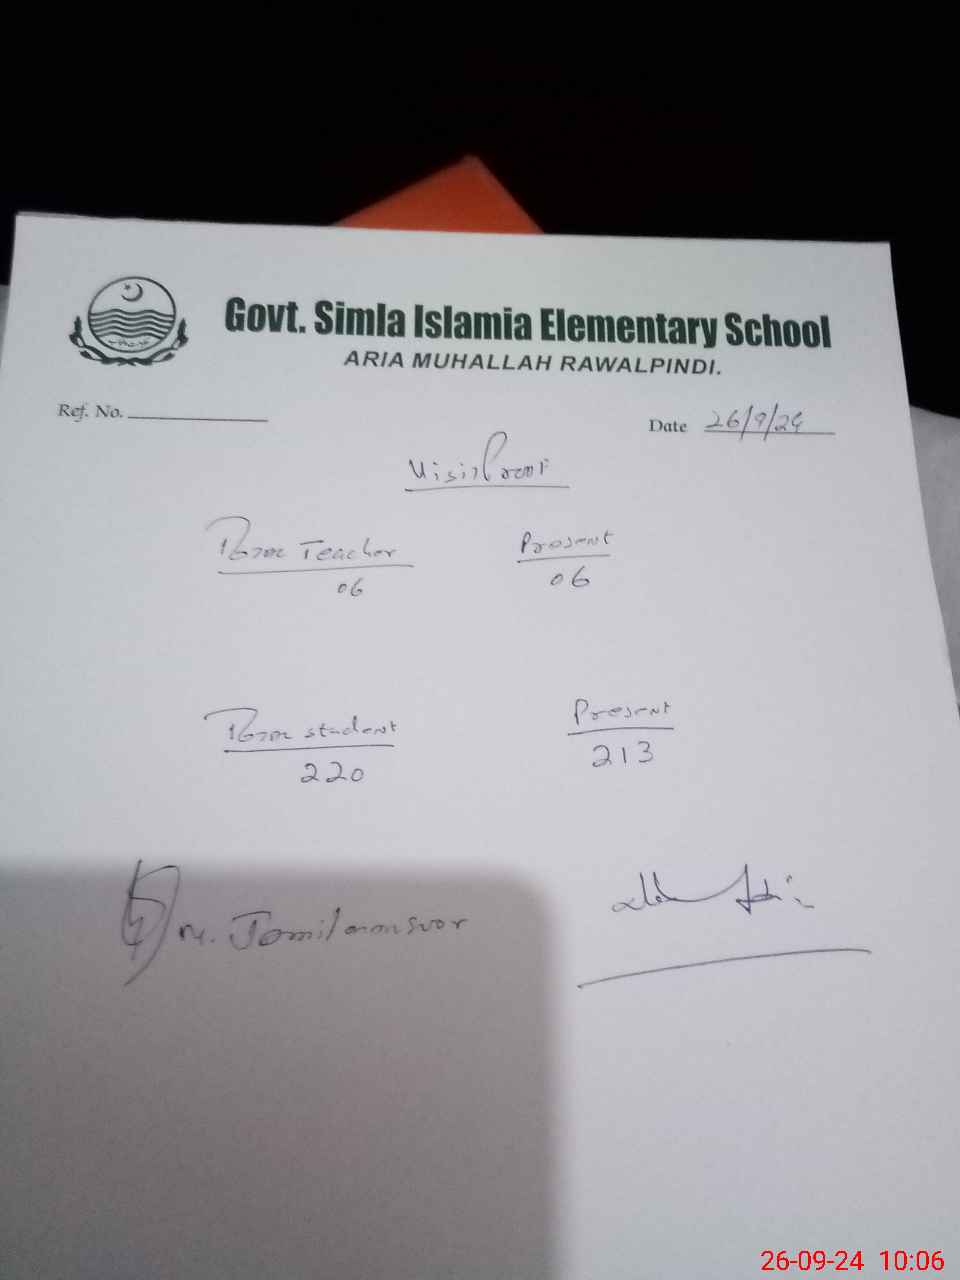 Govt. Simla Islamia Elementary School
ARIA MUHALLAH RAWALPINDI.
Ref. No.
Date 26/9/24
Visit Proof
Teacher Present
06 06
student Present
220 213
M. Jamil
26-09-24 10:06